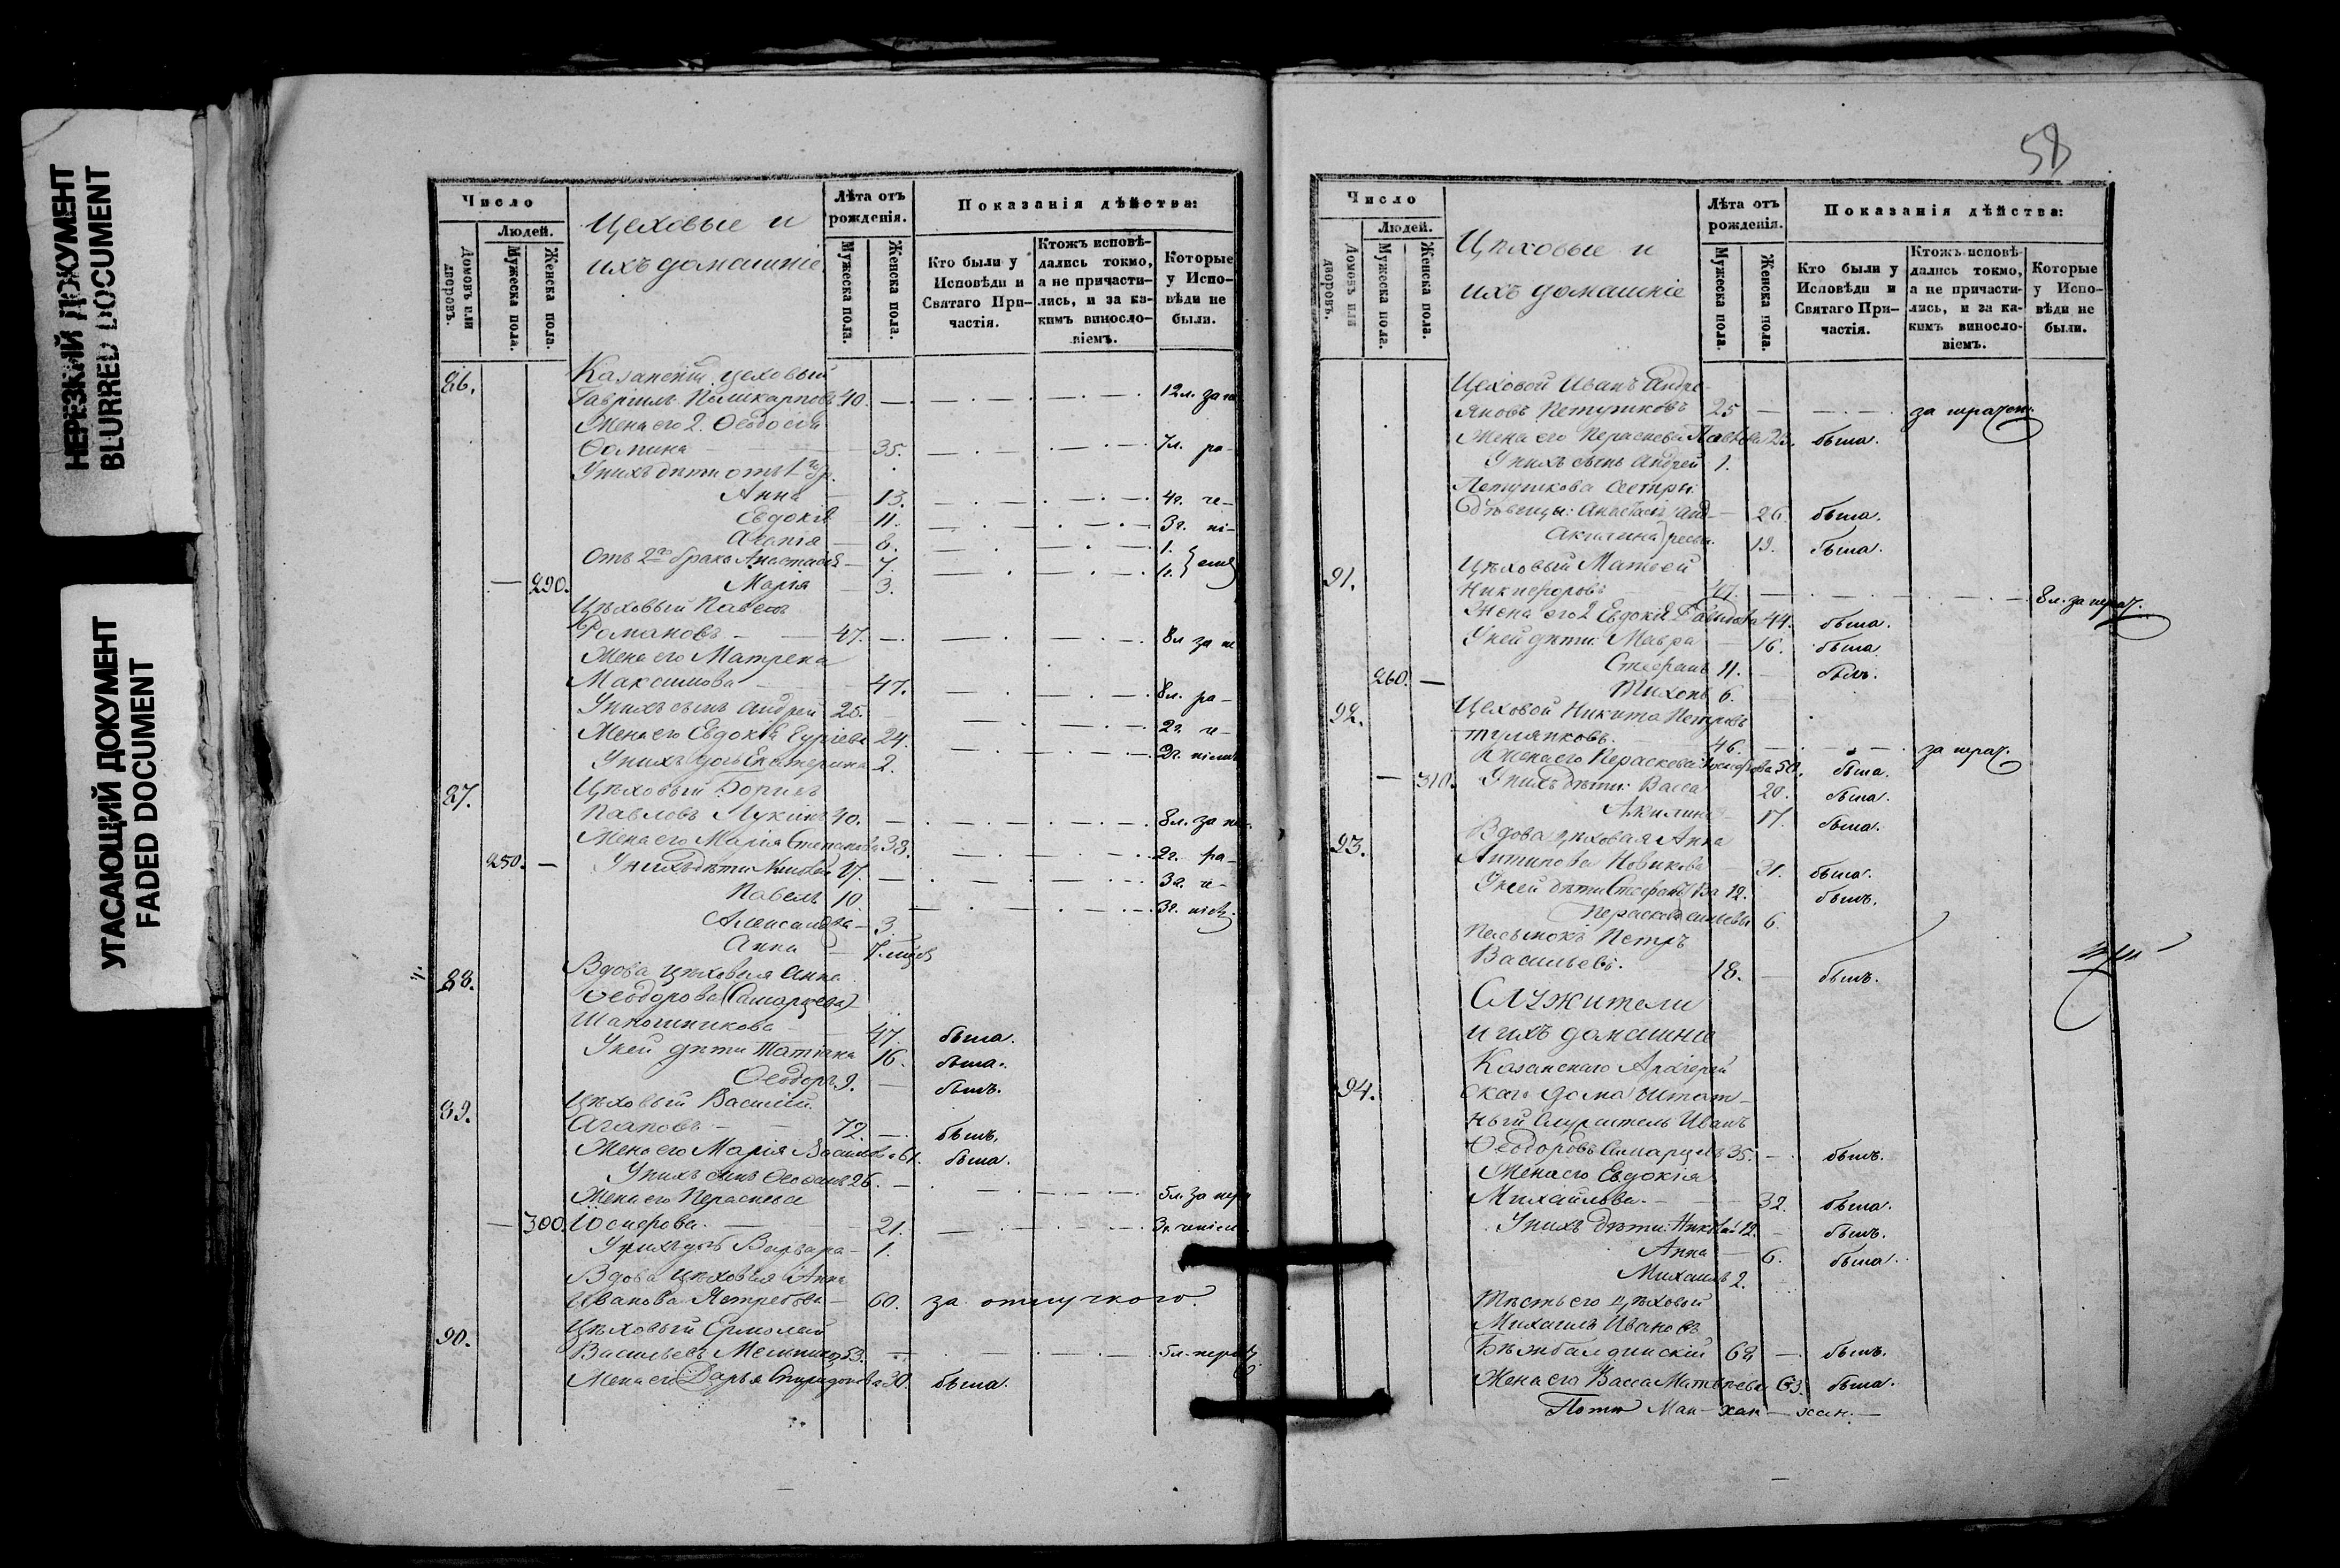 НЕРЕЗКИЙ ДОКУМЕНТ
BLURRED DOCUMENT
УГАСАЮЩИЙ ДОКУМЕНТ
FADED DOCUMENT
Число
Людей.
Домовъ или дворовъ.
Мужеска пола.
Женска пола.
Цеховые и
ихъ домашніе
Лѣта отъ рожденія.
Мужеска пола.
Женска пола.
Показанія дѣйства:
Кто были у Исповѣди и Святаго Причастія.
Ктожъ исповѣдались токмо, а не причастились, и за какимъ винословіемъ.
Которые у Исповѣди не были.
86. Казанскій цеховый
Гавріилъ Поликарповъ 40. 12 л. за
Жена его 2. Ѳеодосія
Ѳомина 35. 7 л. ра-
У нихъ дѣти отъ 1го бр.
Анна 13. 4 г. че-
Евдокія 11. 3 г. ні-
Агапія 8. 1.
Отъ 2го брака Анастасія 7. 1. емъ
— 290. Марія 3.
Цѣховый Павелъ
Романовъ 47. 8 л за не
Жена его Матрена
Максимова 47. 8 л. ра-
У нихъ сынъ Андрей 25. 2 г. че-
Жена его Евдокія Гуріева 24. 2 г. ніемъ
У нихъ дочь Екатерина 2.
87. Цѣховый Борисъ
Павловъ Лукинъ 40. 8 л. за не-
Жена его Марія Степанова 38. 2 г. ра-
250. — У нихъ дѣти Николай 17. 3 г. че-
Павелъ 10. 3 г. ніемъ
Александра 3.
Анна
88. Вдова цѣховая Анна
Ѳеодорова (Самарцева)
Шапошникова 47. была.
У ней дѣти Татіана 16 была.
Ѳеодоръ 9. былъ.
89. Цѣховый Василій
Агаповъ 72. былъ.
Жена его Марія Васильева 61. была.
У нихъ сынъ 26.
Жена его Параскева 5 л. за нера
— 300. Іосифова. 21. 3 г. ченіем
У нихъ дочь Варвара 1.
Вдова цѣховая Анна
Иванова Ястребова 60. за отлучкою.
90. Цѣховый Ермолай
Васильевъ Мельниковъ 53. 5 л. нерач.
Жена его Дарья Спиридонова 30. была.
58
Число
Людей.
Домовъ или дворовъ.
Мужеска пола.
Женска пола.
Цѣховые и
ихъ домашніе
Лѣта отъ рожденія.
Мужеска пола.
Женска пола.
Показанія дѣйства:
Кто были у Исповѣди и Святаго Причастія.
Ктожъ исповѣдались токмо, а не причастились, и за какимъ винословіемъ.
Которые у Исповѣди не были.
Цеховой Иванъ Андре-
яновъ Петушковъ 25 за нерачен.
Жена его Параскева Павлова 23. была.
У нихъ сынъ Андрей 1.
Петушкова сестры:
дѣвицы: Анастасія Анд- 26 была.
Акилина реевы. 19. была.
91. Цѣховый Матѳей
Никифоровъ 47. 8 л. за нерач.
Жена его 2 Евдокія Давидова 44. была.
У ней дѣти: Мавра 16. была
Стефанъ 11. былъ.
260. — Тихонъ 6.
92. Цеховой Никита Петровъ
Туляковъ. 46. за нерач.
Жена его Параскева 50. была.
— 310. У нихъ дѣти: Васса 20. была.
Акилина 17. была.
93. Вдова цѣховая Анна
Антипова Новикова 31. была.
У ней дѣти Стефанъ 12. былъ.
Параскева 6.
Пасынокъ Петръ
Васильевъ. 18. былъ.
Служители
и ихъ домашніе
Казанскаго Архіерей
94. скаго дома штат-
ный служитель Иванъ
Ѳеодоровъ Самарцевъ 35. былъ.
Жена его Евдокія
Михайлова. 32. была.
У нихъ дѣти: Николай 12. былъ.
Анна 6. была.
Михаилъ 2.
Тесть его цѣховой
Михаилъ Ивановъ
68. былъ.
Жена его Васса Матвѣева 63. была.